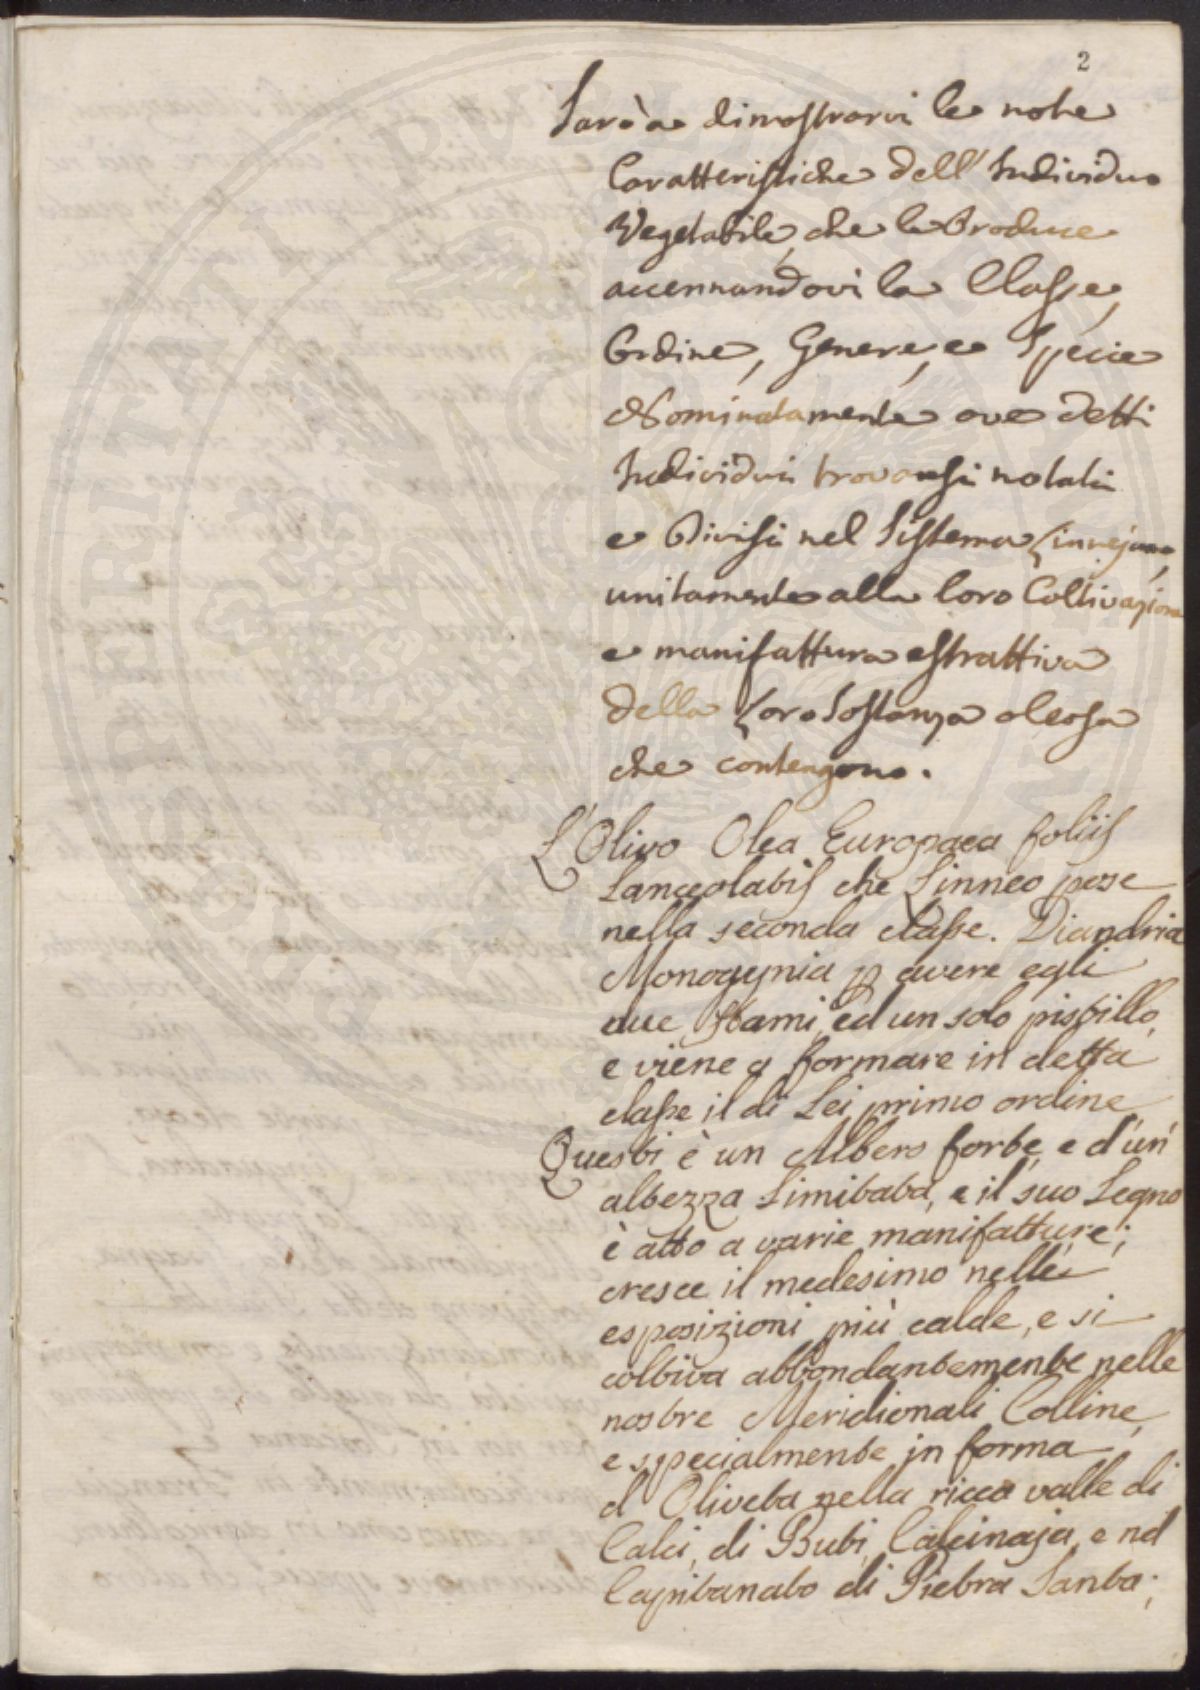 2
Sarò a dimostrarvi le note
Caratteristiche dell' Individuo
Vegetabile, che le Produce
accennandovi la Classe,
Ordine, Genere, e Specie
Nominatamente ove detti
Individui trovansi notati
e Divisi nel Sistema Linnejano,
unitamente alla loro Coltivazione
e manifattura estrattiva
della Loro Sostanza oleosa
che contengono.
L'Olivo Olea Europaea foliis
Lanceolatis che Linneo pose
nella seconda classe. Diandria
Monogynia p avere egli
due stami, ed un solo pistillo,
e viene a formare in detta
classe il di Lei primo ordine
Questi è un Albero forte, e d'un'
altezza Limitata, e il suo Legno
è atto a varie manifatture;
cresce il medesimo nelle
esposizioni più calde, e si
coltiva abbondantemente nelle
nostre Meridionali Colline,
e specialmente in forma
d' Oliveta nella ricca valle di
Calci, di Buti, Calcinaja, e nel
Capitanato di Pietra Santa;